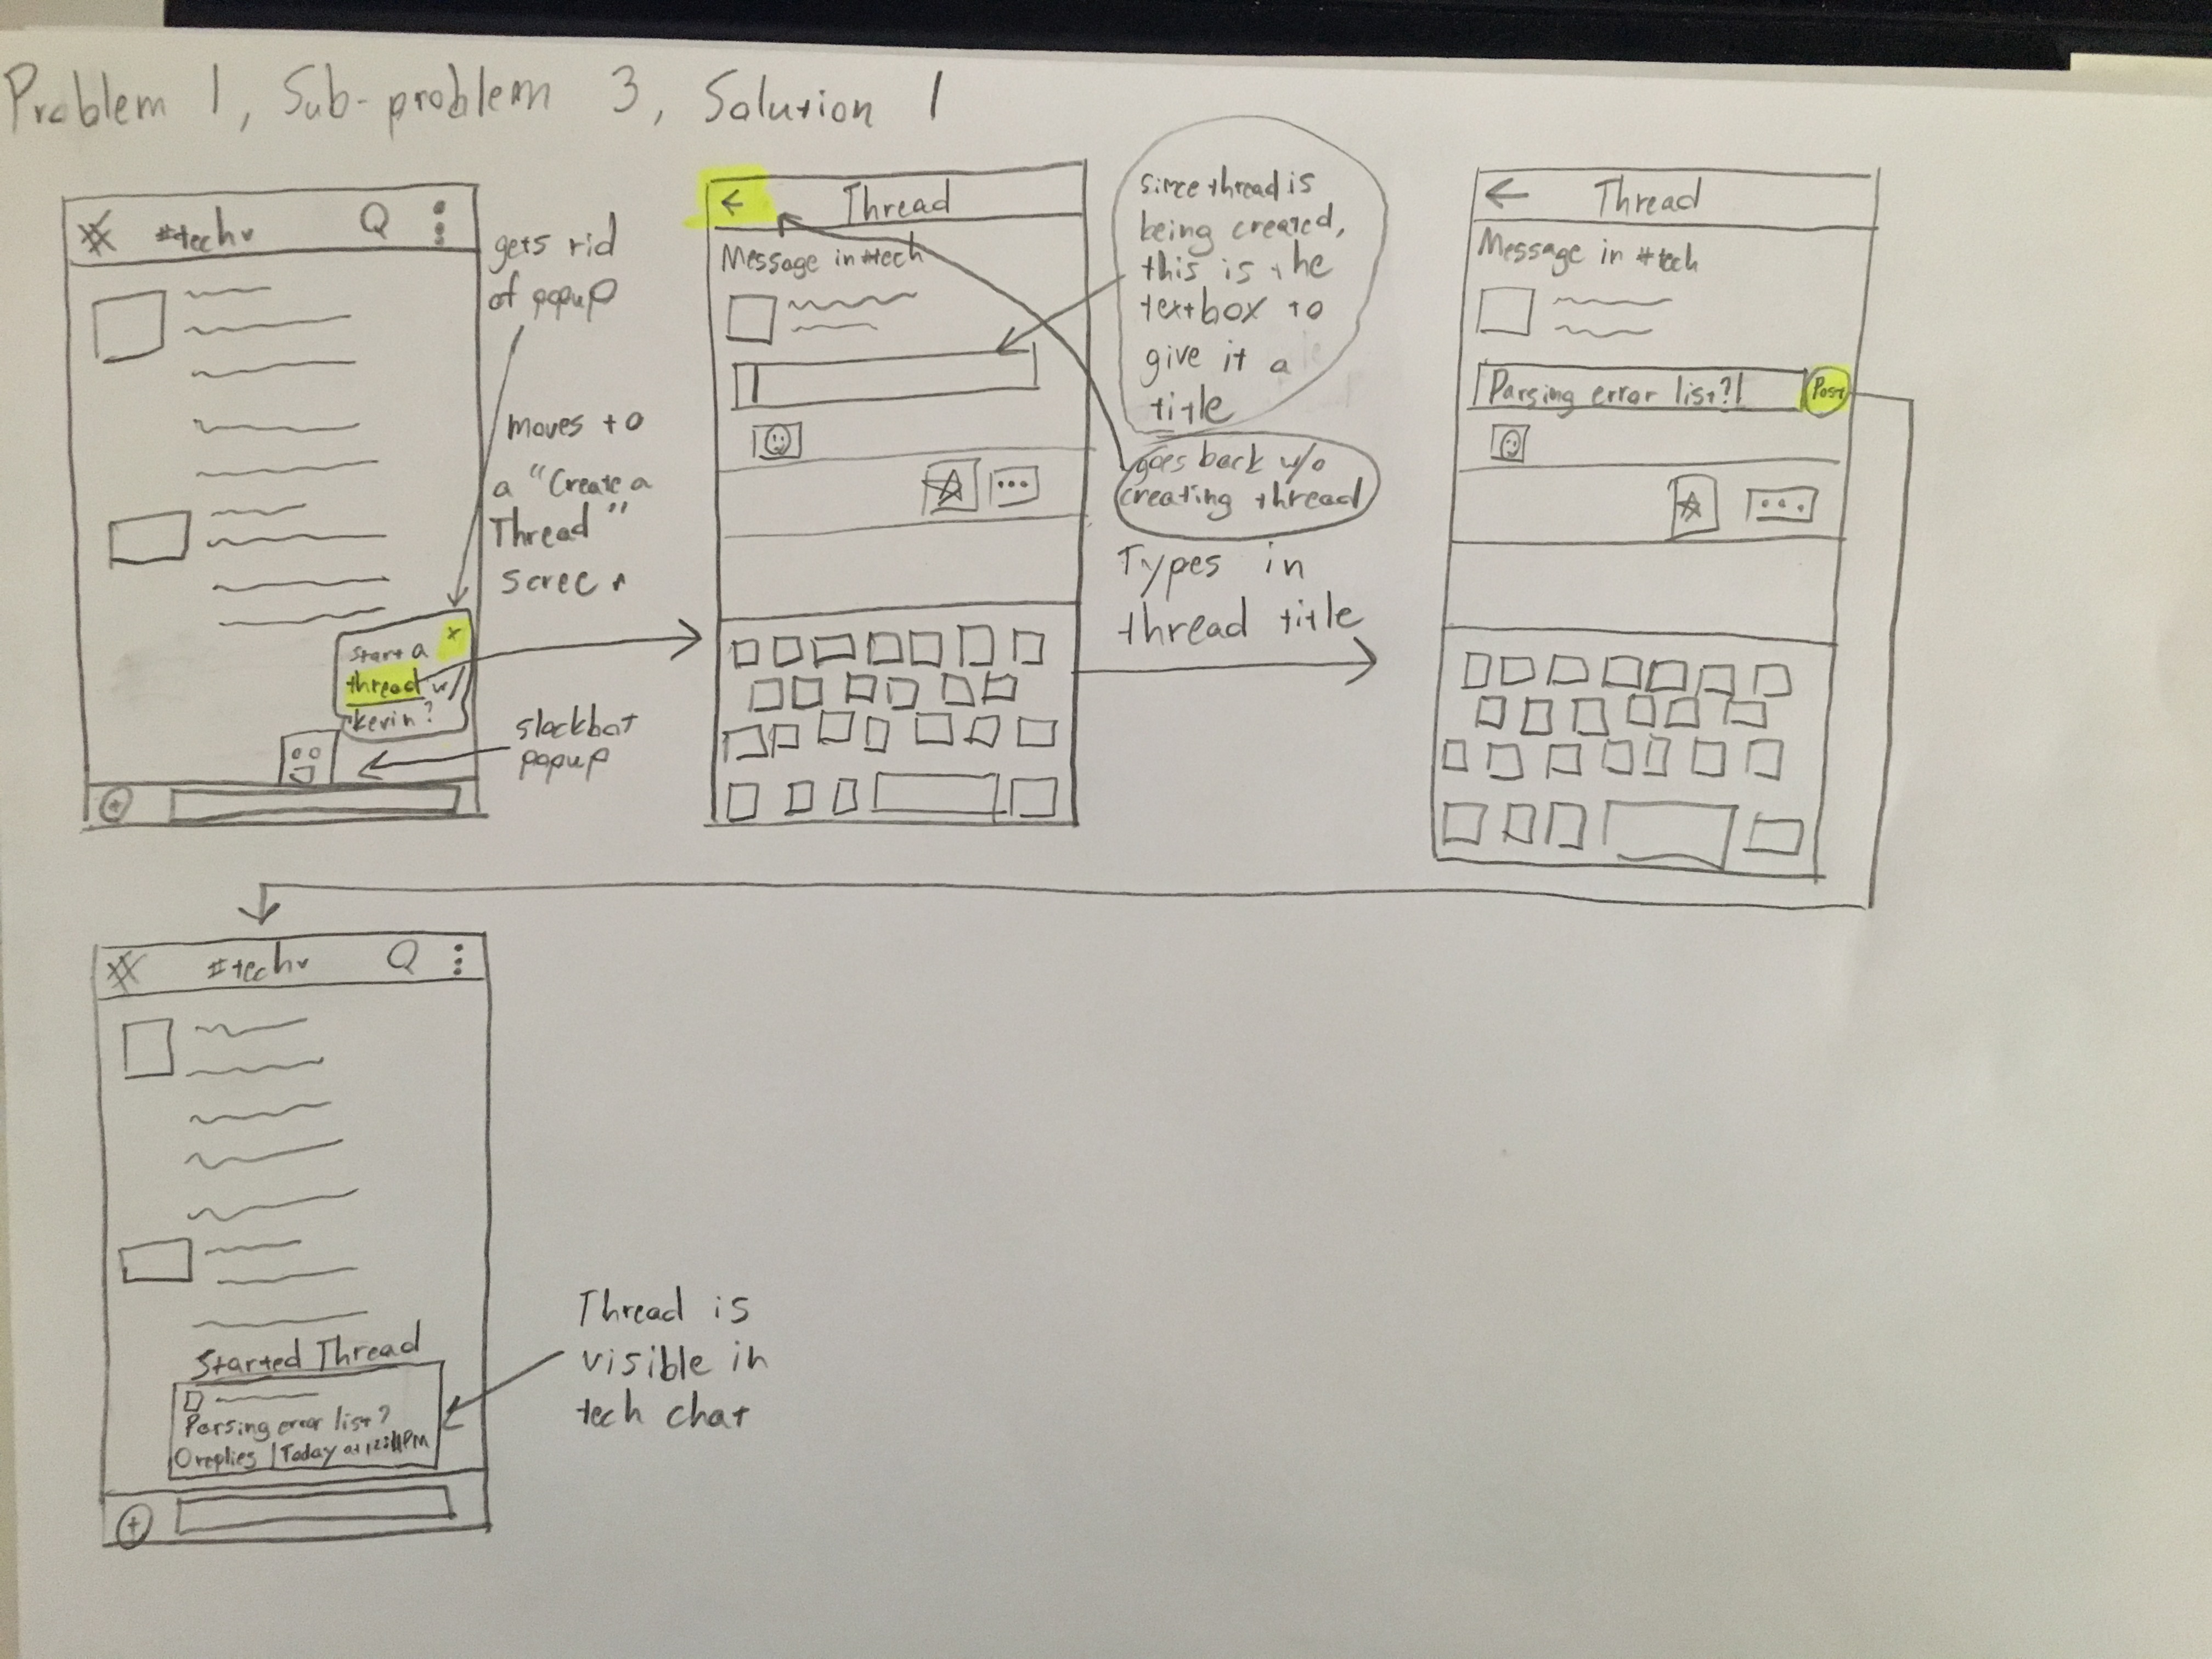 Problem 1, Sub-problem 3, Solution 1
#tech
gets rid
of popup
moves to
a "Create a
Thread"
screen
Start a x
thread w/
kevin?
slackbot
popup
+
← Thread
Message in #tech
...
since thread is
being created,
this is the
textbox to
give it a
title
goes back w/o
creating thread
Types in
thread title
← Thread
Message in #tech
Parsing error list?| Post
...
#tech
Started Thread
Parsing error list?
0 replies | Today at
Thread is
visible in
tech chat
+